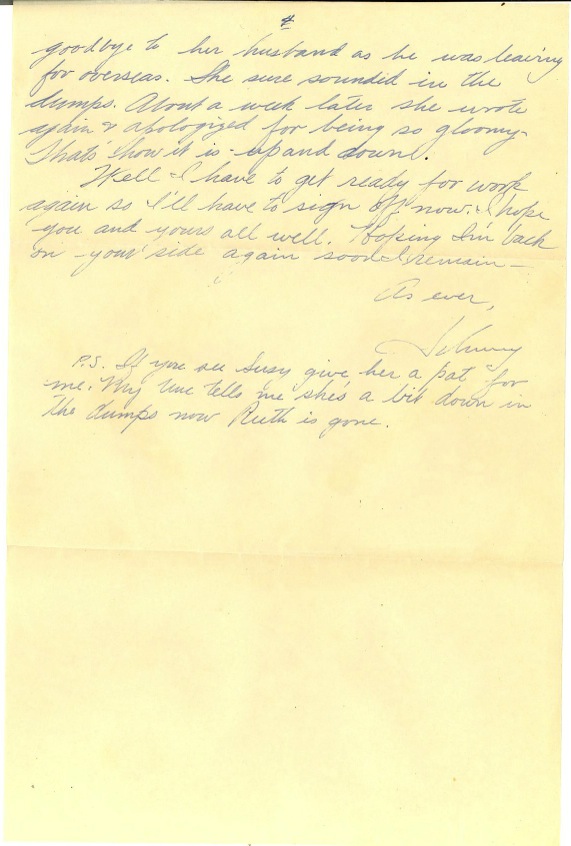 4
goodbye to her husband as he was leaving
for overseas. She sure sounded in the
dumps. About a week later she wrote
again & apologized for being so gloomy.
That's how it is - up and down.
Well I have to get ready for work
again so I'll have to sign off now. I hope
you and yours all well. Hoping I'm back
on your side again soon I remain -
As ever,
Johnny
P.S. If you see Susy give her a pat for
me. My Unc tells me she's a bit down in
the dumps now Ruth is gone.